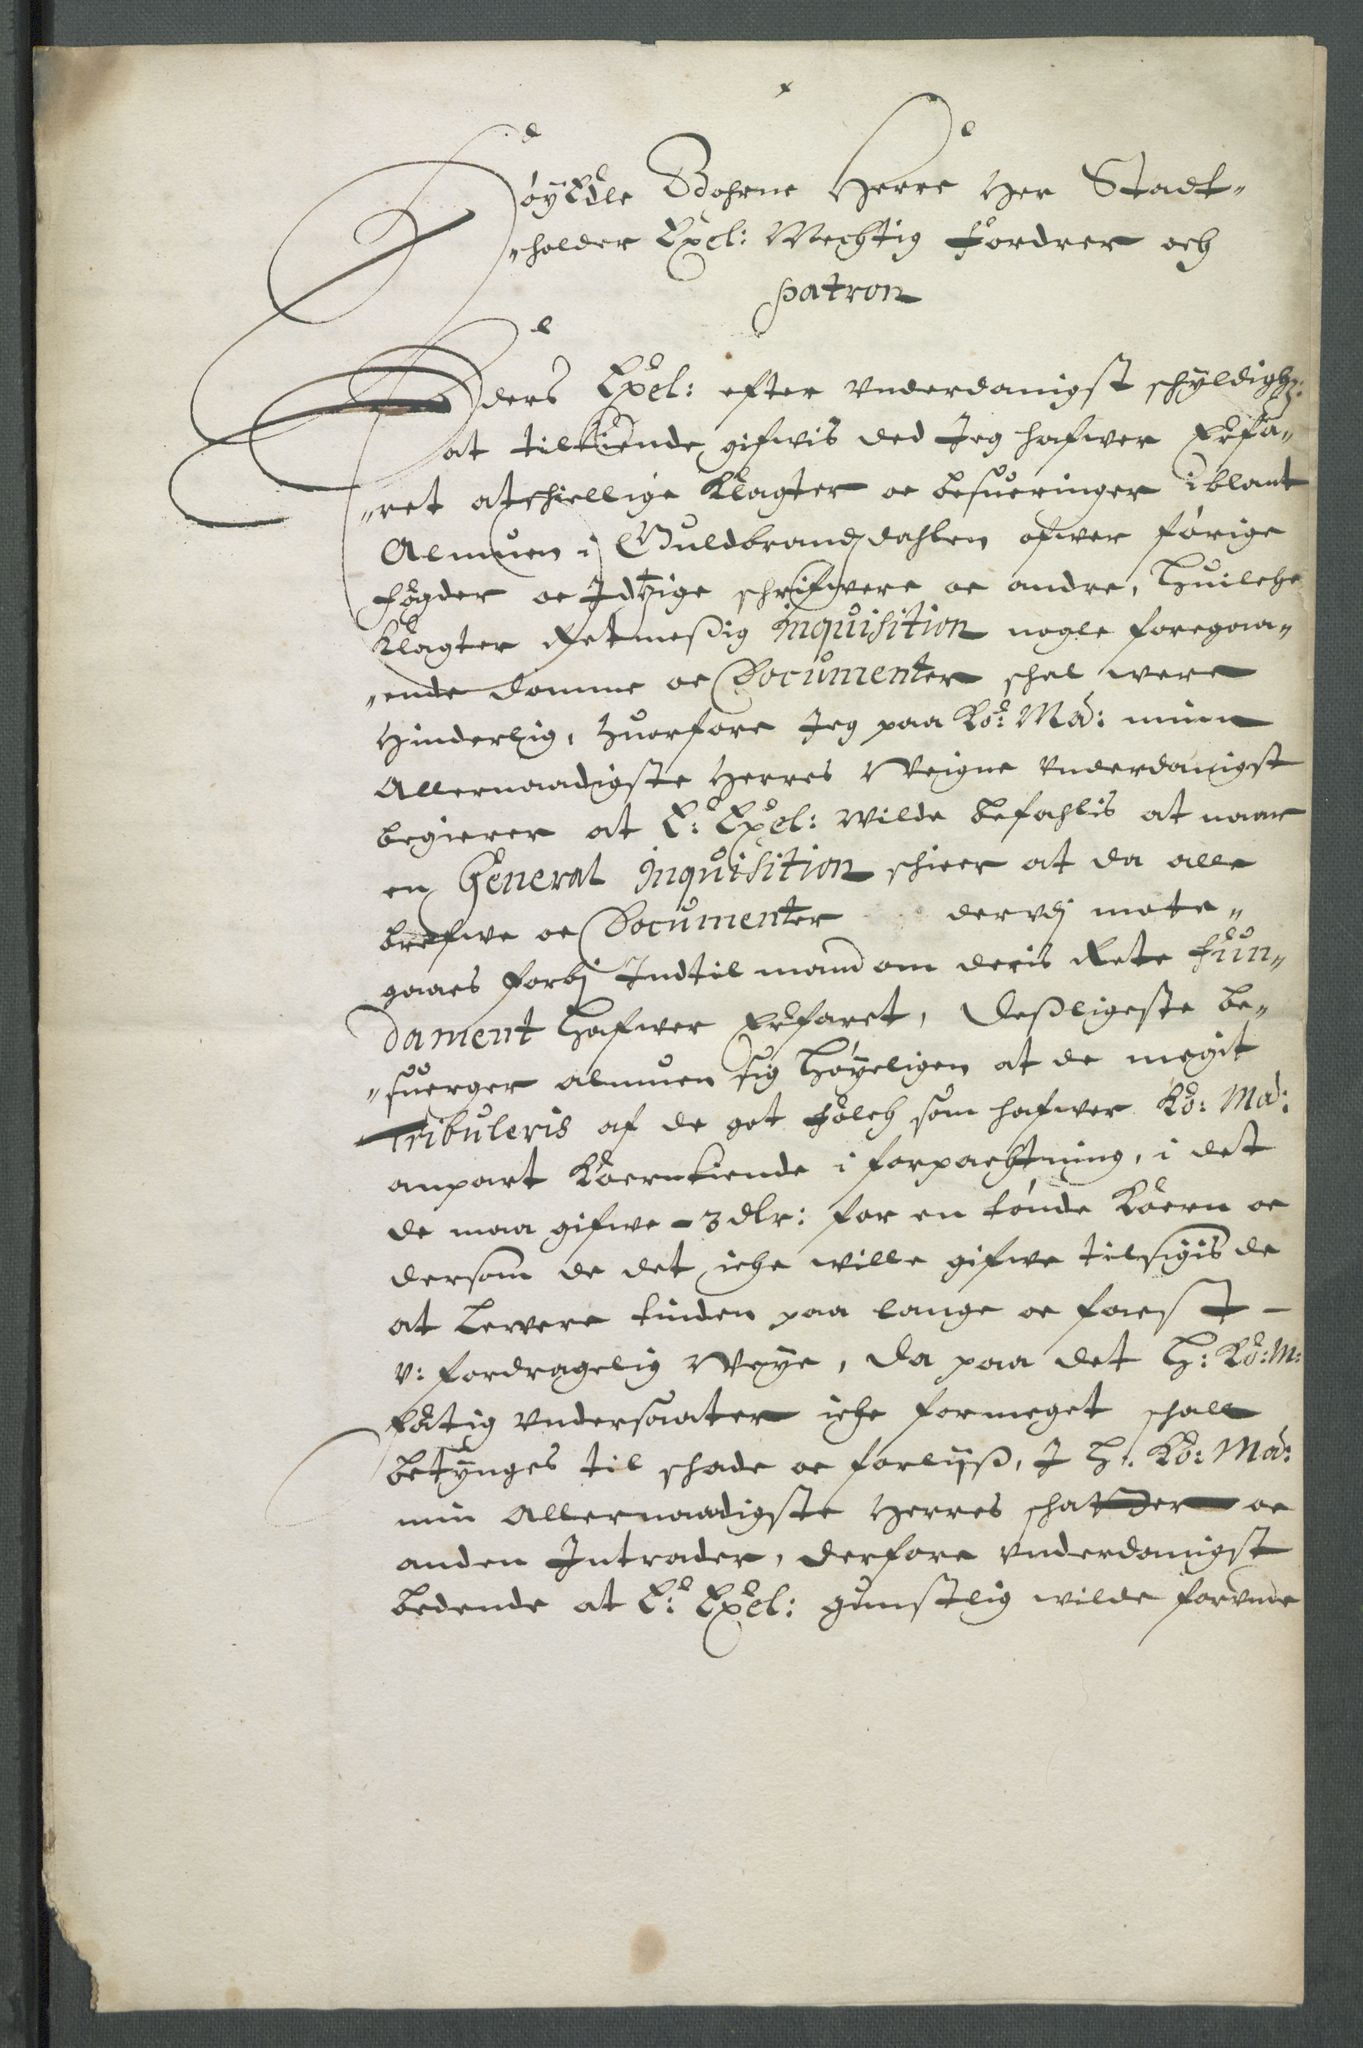 HøyEdle Bohrne Herre Her Stadt¬
holder Expl: Mechtig fordrer och
patron
Eders Expl: efter vnderdanigst schyldigh:
at tilkiende gifwis ded Jeg hafwer Erfa¬
ret atschiellige Klagter oc besueringer iblant
Almuen i Guldbrandzdahlen ofwer førige
fogder oc Jdtzige schrifwere oc andre, huilche
Klagter Retmessig inquisition nogle foregaa¬
ende domme oc Documenter schal were
hinderlig, huorfore Jeg paa Ko: Ma: minn
Allernaadigste Herres Weigne vnderdanigst
begierer at E: Expl: wilde befahlis at naar
en General inquisition schieer at da alle
brefwe oc Documenter dervdj mote¬
gaaes forbj Indtil mand om deris Rete fun¬
dament hafwer Erfaret, desligeste be¬
suerger almuen sig høyeligen at de megit
tribuleris af de got folch som hafwer Ko: Ma:
anpart Koerntiende i forpachtning, i det
de maa gifwe - 3 dlr: for en tønde Koern oc
dersom de det iche wille gifwe tilsigis de
at lewere tinden paa lange oc faest -
v: fordragelig Weye, da paa det H: Ko: M:
fatig vndersaater iche formeget schall
betynges til schade oc forlijs, J H. Ko: Ma:
min Allernaadigste Herres schatter oc
anden Intrader, derfore vnderdanigst
bedende at E: Expl: gunstlig wilde forvnde